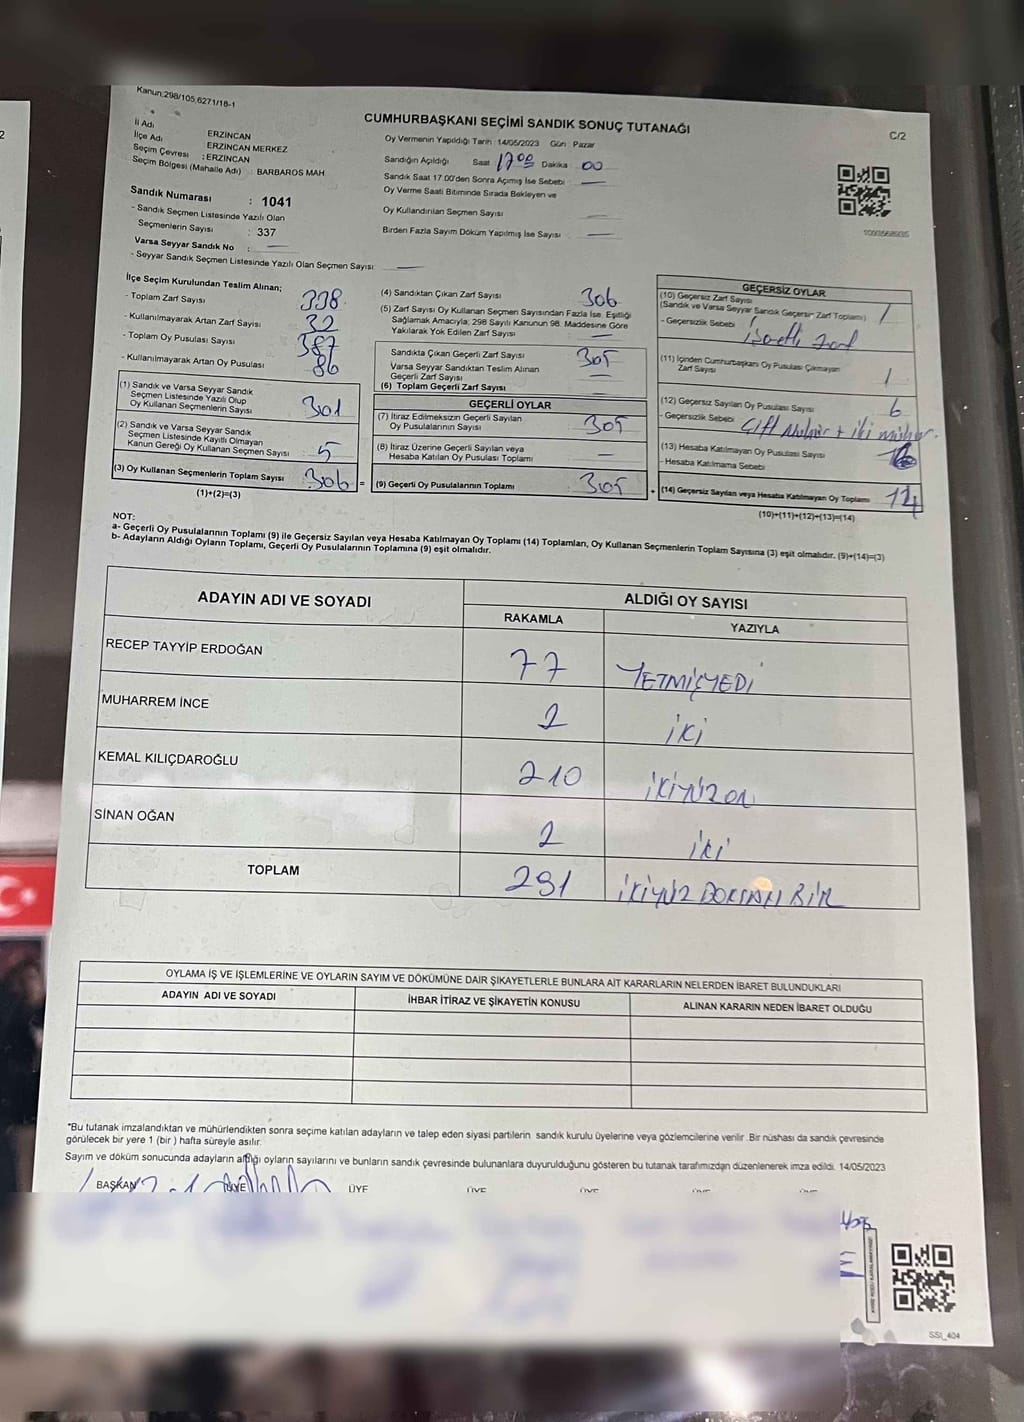 Kanun:298/105,6271/18-1
CUMHURBAŞKANI SEÇİMİ SANDIK SONUÇ TUTANAĞI
C/2
İl Adı ERZİNCAN
İlçe Adı ERZİNCAN MERKEZ
Seçim Çevresi : ERZİNCAN
Seçim Bölgesi (Mahalle Adı) BARBAROS MAH
Sandık Numarası : 1041
- Sandık Seçmen Listesinde Yazılı Olan
Seçmenlerin Sayısı : 337
Varsa Seyyar Sandık No : —
- Seyyar Sandık Seçmen Listesinde Yazılı Olan Seçmen Sayısı: —
Oy Vermenin Yapıldığı Tarih : 14/05/2023 Gün : Pazar
Sandığın Açıldığı Saat 17:00 Dakika : 00
Sandık Saat 17.00'den Sonra Açımış İse Sebebi : —
Oy Verme Saati Bitiminde Sırada Bekleyen ve
Oy Kullandırılan Seçmen Sayısı —
Birden Fazla Sayım Döküm Yapılmış İse Sayısı —
İlçe Seçim Kurulundan Teslim Alınan;
- Toplam Zarf Sayısı 338
- Kullanılmayarak Artan Zarf Sayısı 32
- Toplam Oy Pusulası Sayısı 387
- Kullanılmayarak Artan Oy Pusulası 86
(1) Sandık ve Varsa Seyyar Sandık
Seçmen Listesinde Yazılı Olup
Oy Kullanan Seçmenlerin Sayısı 301
(2) Sandık ve Varsa Seyyar Sandık
Seçmen Listesinde Kayıtlı Olmayan
Kanun Gereği Oy Kullanan Seçmen Sayısı 5
(3) Oy Kullanan Seçmenlerin Toplam Sayısı 306 =
(1)+(2)=(3)
(4) Sandıktan Çıkan Zarf Sayısı 306
(5) Zarf Sayısı Oy Kullanan Seçmen Sayısından Fazla İse, Eşitliği
Sağlamak Amacıyla; 298 Sayılı Kanunun 98. Maddesine Göre
Yakılarak Yok Edilen Zarf Sayısı —
Sandıkta Çıkan Geçerli Zarf Sayısı 305
Varsa Seyyar Sandıktan Teslim Alınan
Geçerli Zarf Sayısı —
(6) Toplam Geçerli Zarf Sayısı
GEÇERLİ OYLAR
(7) İtiraz Edilmeksizin Geçerli Sayılan
Oy Pusulalarının Sayısı 305
(8) İtiraz Üzerine Geçerli Sayılan veya
Hesaba Katılan Oy Pusulası Toplamı —
(9) Geçerli Oy Pusulalarının Toplamı 305 +
GEÇERSİZ OYLAR
(10) Geçersiz Zarf Sayısı
(Sandık ve Varsa Seyyar Sandık Geçersiz Zarf Toplamı) 1
- Geçersizlik Sebebi : işaretli zarf
(11) İçinden Cumhurbaşkanı Oy Pusulası Çıkmayan
Zarf Sayısı 1
(12) Geçersiz Sayılan Oy Pusulası Sayısı 6
- Geçersizlik Sebebi Çift Mühür + iki mühür.
(13) Hesaba Katılmayan Oy Pusulası Sayısı
- Hesaba Katılmama Sebebi
(14) Geçersiz Sayılan veya Hesaba Katılmayan Oy Toplamı 14
(10)+(11)+(12)+(13)=(14)
NOT:
a- Geçerli Oy Pusulalarının Toplamı (9) ile Geçersiz Sayılan veya Hesaba Katılmayan Oy Toplamı (14) Toplamları, Oy Kullanan Seçmenlerin Toplam Sayısına (3) eşit olmalıdır. (9)+(14)=(3)
b- Adayların Aldığı Oyların Toplamı, Geçerli Oy Pusulalarının Toplamına (9) eşit olmalıdır.
ADAYIN ADI VE SOYADI ALDIĞI OY SAYISI
RAKAMLA YAZIYLA
RECEP TAYYİP ERDOĞAN 77 YETMİŞYEDİ
MUHARREM İNCE 2 İKİ
KEMAL KILIÇDAROĞLU 210 İKİYÜZON
SİNAN OĞAN 2 İKİ
TOPLAM 291 İKİYÜZ DOKSAN BİR
OYLAMA İŞ VE İŞLEMLERİNE VE OYLARIN SAYIM VE DÖKÜMÜNE DAİR ŞİKAYETLERLE BUNLARA AİT KARARLARIN NELERDEN İBARET BULUNDUKLARI
ADAYIN ADI VE SOYADI İHBAR İTİRAZ VE ŞİKAYETİN KONUSU ALINAN KARARIN NEDEN İBARET OLDUĞU
"Bu tutanak imzalandıktan ve mühürlendikten sonra seçime katılan adayların ve talep eden siyasi partilerin sandık kurulu üyelerine veya gözlemcilerine verilir .Bir nüshası da sandık çevresinde
görülecek bir yere 1 (bir ) hafta süreyle asılır.
Sayım ve döküm sonucunda adayların aldığı oyların sayılarını ve bunların sandık çevresinde bulunanlara duyurulduğunu gösteren bu tutanak tarafımızdan düzenlenerek imza edildi. 14/05/2023
BAŞKAN ÜYE ÜYE ÜYE ÜYE ÜYE ÜYE
SSI_404